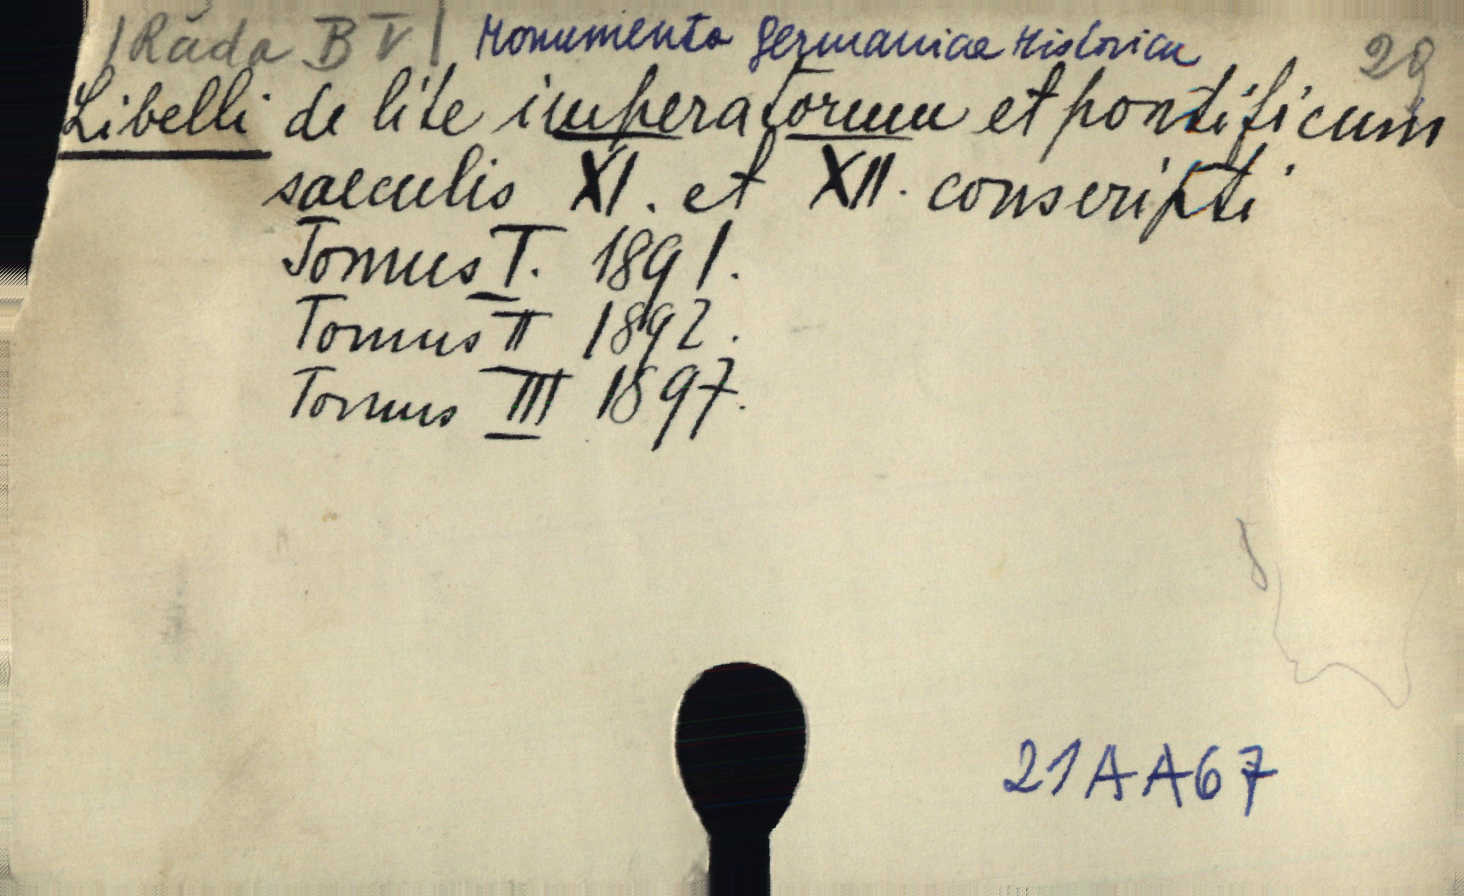 /Řada B V/ Monumenta Germaniae Historica 29
Libelli de lite imperatorum et pontificum
saeculis XI. et XII. conscripti
Tomus I. 1891.
Tomus II 1892.
Tomus III 1897.
21AA67